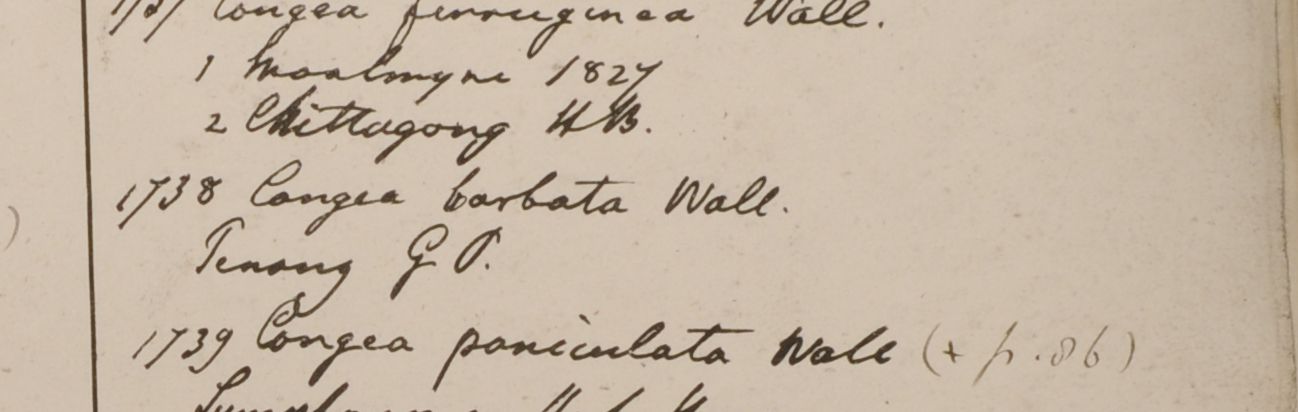 1737 Congea ferruginea Wall.
1 Moalmyne 1827
2 Chittagong HB.
1738 Congea barbata Wall.
Penang G P.
1739 Congea paniculata Wall (+ p. 86)